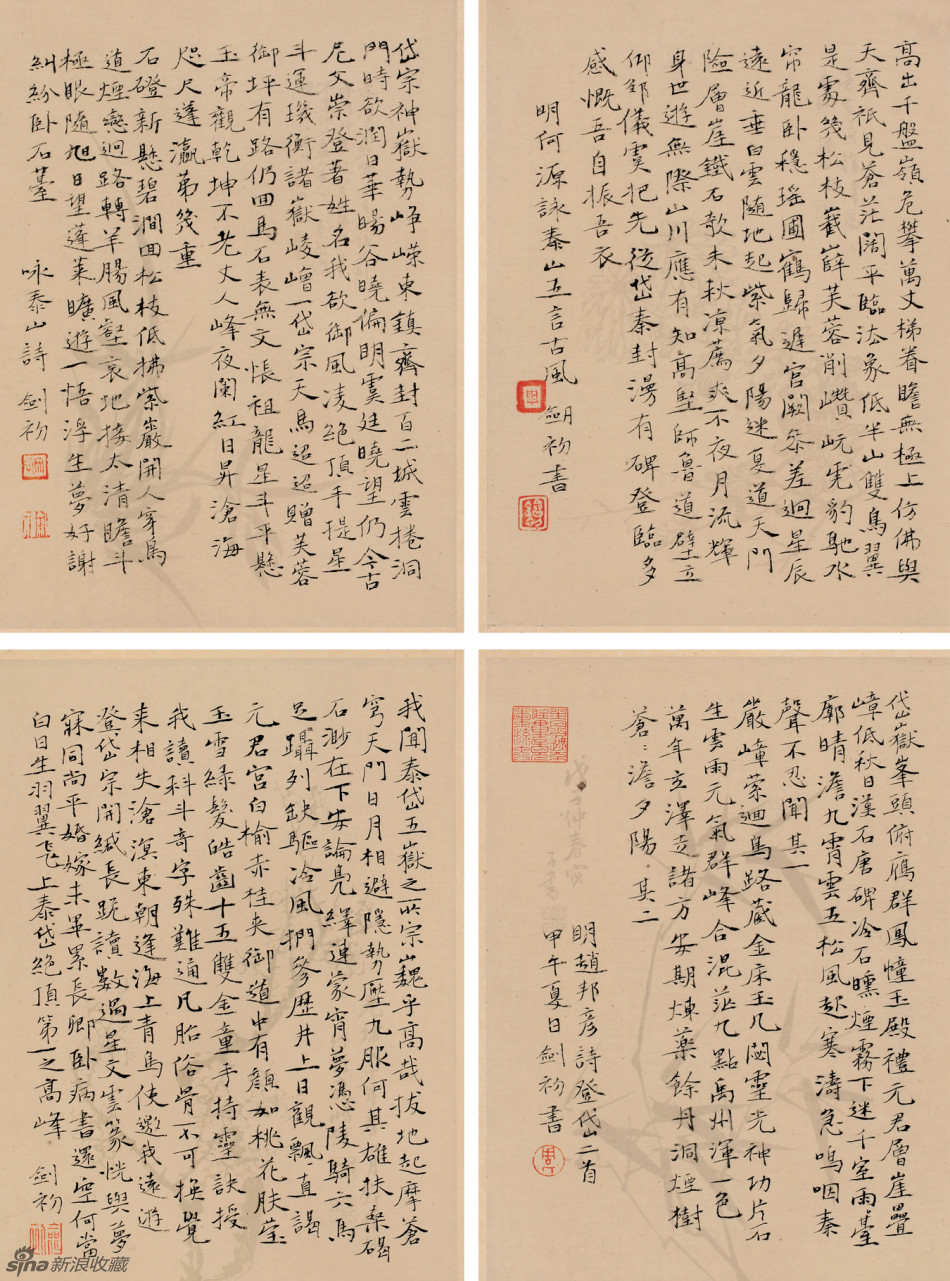 高出千盤嶺危攀萬丈梯眷瞻無極上仿佛與
天齊祇見蒼茫闊平臨法象低半山雙鳥翼
是處幾松枝巀嶭芙蓉削巑岏虎豹馳水
帘龍卧穩瑤圃鶴歸遲宮闕參差迥星辰
遠近垂白雲隨地起紫氣夕陽迷夏道天門
險層崖鐵石欹未秋凉薦爽不夜月流輝
身世遊無際山川應有知高堅師魯道壁立
仰鄒儀虞祀先從岱秦封漫有碑登臨多
感慨吾自振吾衣
明何源詠泰山五言古風 劍初書
岱宗神嶽勢崢嶸東鎮齊封百二城雲捲洞
門時欲潤日華暘谷曉偏明虞廷曉望仍今古
尼父崇登著姓名我欲御風凌絕頂手提星
斗運璣衡諸嶽崚嶒一岱宗天馬迢迢贈芙蓉
御坪有路仍回馬石表無文悵祖龍星斗平懸
玉帝觀乾坤不老丈人峰夜闌紅日昇滄海
咫尺蓬瀛第幾重
石磴新懸碧澗回松枝低拂紫巖開人穿鳥
道煙巒迥路轉羊腸風壑哀地接太清瞻斗
極眼隨旭日望蓬萊曠遊一悟浮生夢好謝
糾紛卧石臺
咏泰山詩 劍初
岱嶽峯頭俯雁群鳳幢玉殿禮元君層崖疊
嶂低秋日漢石唐碑冷石曛煙霧下迷千室雨臺
廓晴澹九霄雲五松風起寒濤急嗚咽秦
聲不忍聞其一
巖嶂縈迴鳥路藏金床玉几閟靈光神功片石
生雲雨元氣群峰合混茫九點禹州渾一色
萬年立澤走諸方安期煉藥餘丹洞煙樹
蒼々澹夕陽 其二
明趙邦彥詩登岱二首
甲午夏日劍初書
我聞泰岱五嶽之所宗巍乎高哉拔地起摩蒼
穹天門日月相避隱勢壓九服何其雄扶桑碣
石渺在下安論鳧繹連蒙宵夢憑陵騎六馬
足躡列缺驅冷風捫參歷井上日觀飄飄直謁
元君宮白榆赤桂夾御道中有顏如桃花膚瑩
玉雪綠髮皓齒十五雙金童手持靈訣授
我讀科斗奇字殊難通凡胎俗骨不可換覺
來相失滄溟東朝逢海上青鳥使邀我遠遊
登岱宗開緘長跪讀數過星文雲篆恍與夢
寐同尚平婚嫁未畢累長卿卧病書還空何當
白日生羽翼飛上泰岱絕頂第一之高峰 劍初
sina新浪收藏